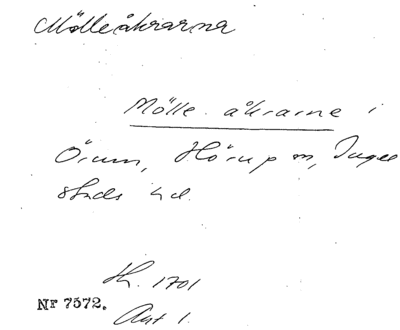 Mölleåkrarna
Mölle. åkrarne i
Örum, Hörup sn, Inge
stads hd.
Lh. 1701
NF 7572.
Ant 1.